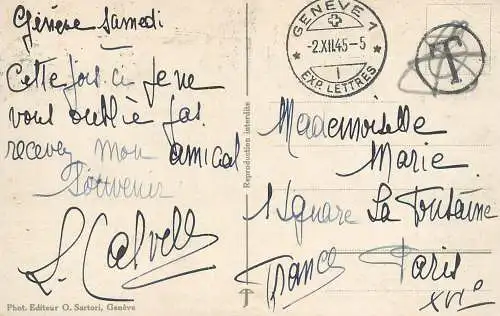 Génève Samedi
Cette fois ci je ne
vous oublie pas
recevez mon amical
Souvenir
L. Calvelli
Phot. Editeur O. Sartori, Genève
Reproduction interdite
GENÈVE 1
-2.XII.45-5
EXP. LETTRES
T
Mademoiselle
Marie
1 Square La Fontaine
France Paris
XVIe